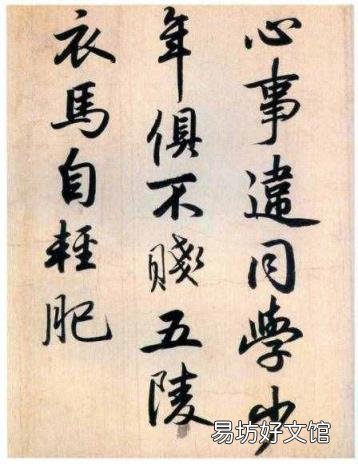 心事違同學少
年俱不賤五陵
衣馬自輕肥
易坊好文馆